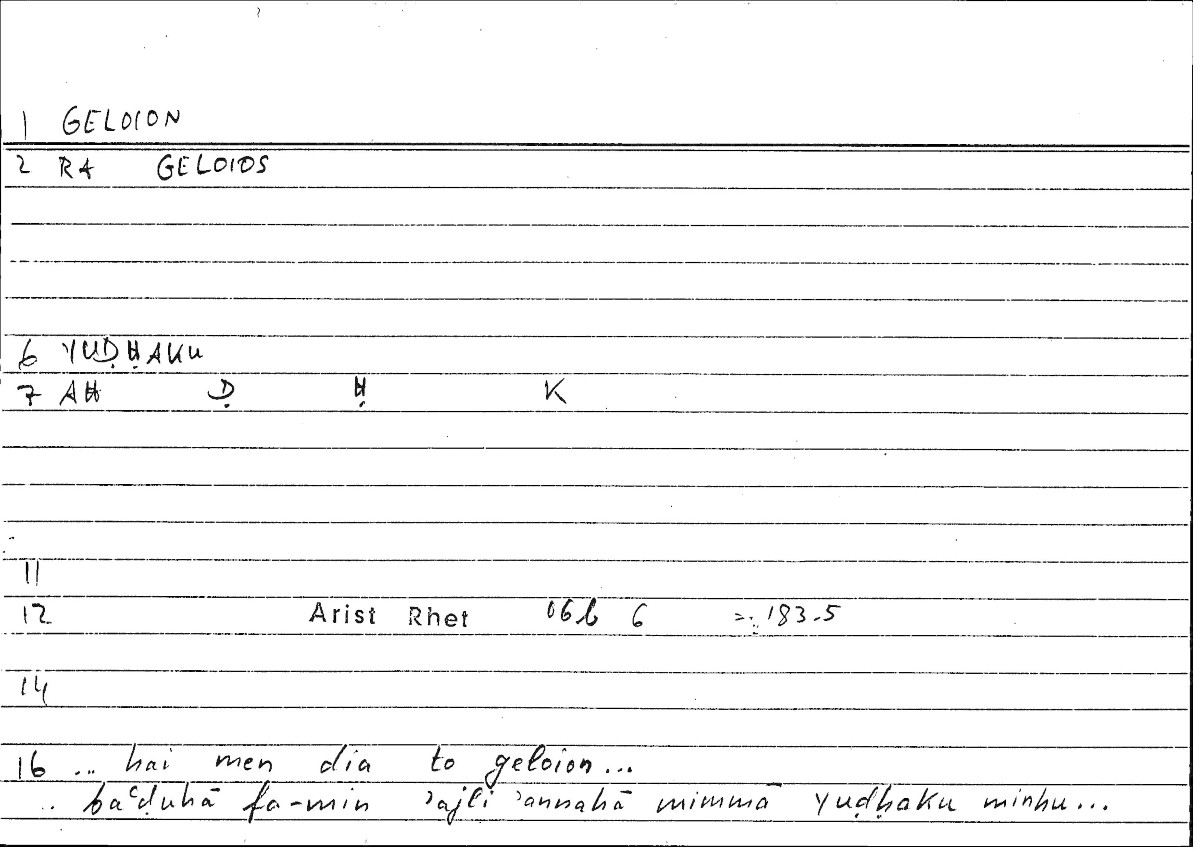 1 GELOION
2 RA GELOIOS
6 YUḌḤAKU
7 AH Ḍ Ḥ K
11
12 Arist Rhet 06b 6 = 183.5
14
16 ... hai men dia to geloion...
.. baʿḍuhā fa-min ʾajli ʾannahā mimmā yuḍḥaku minhu...